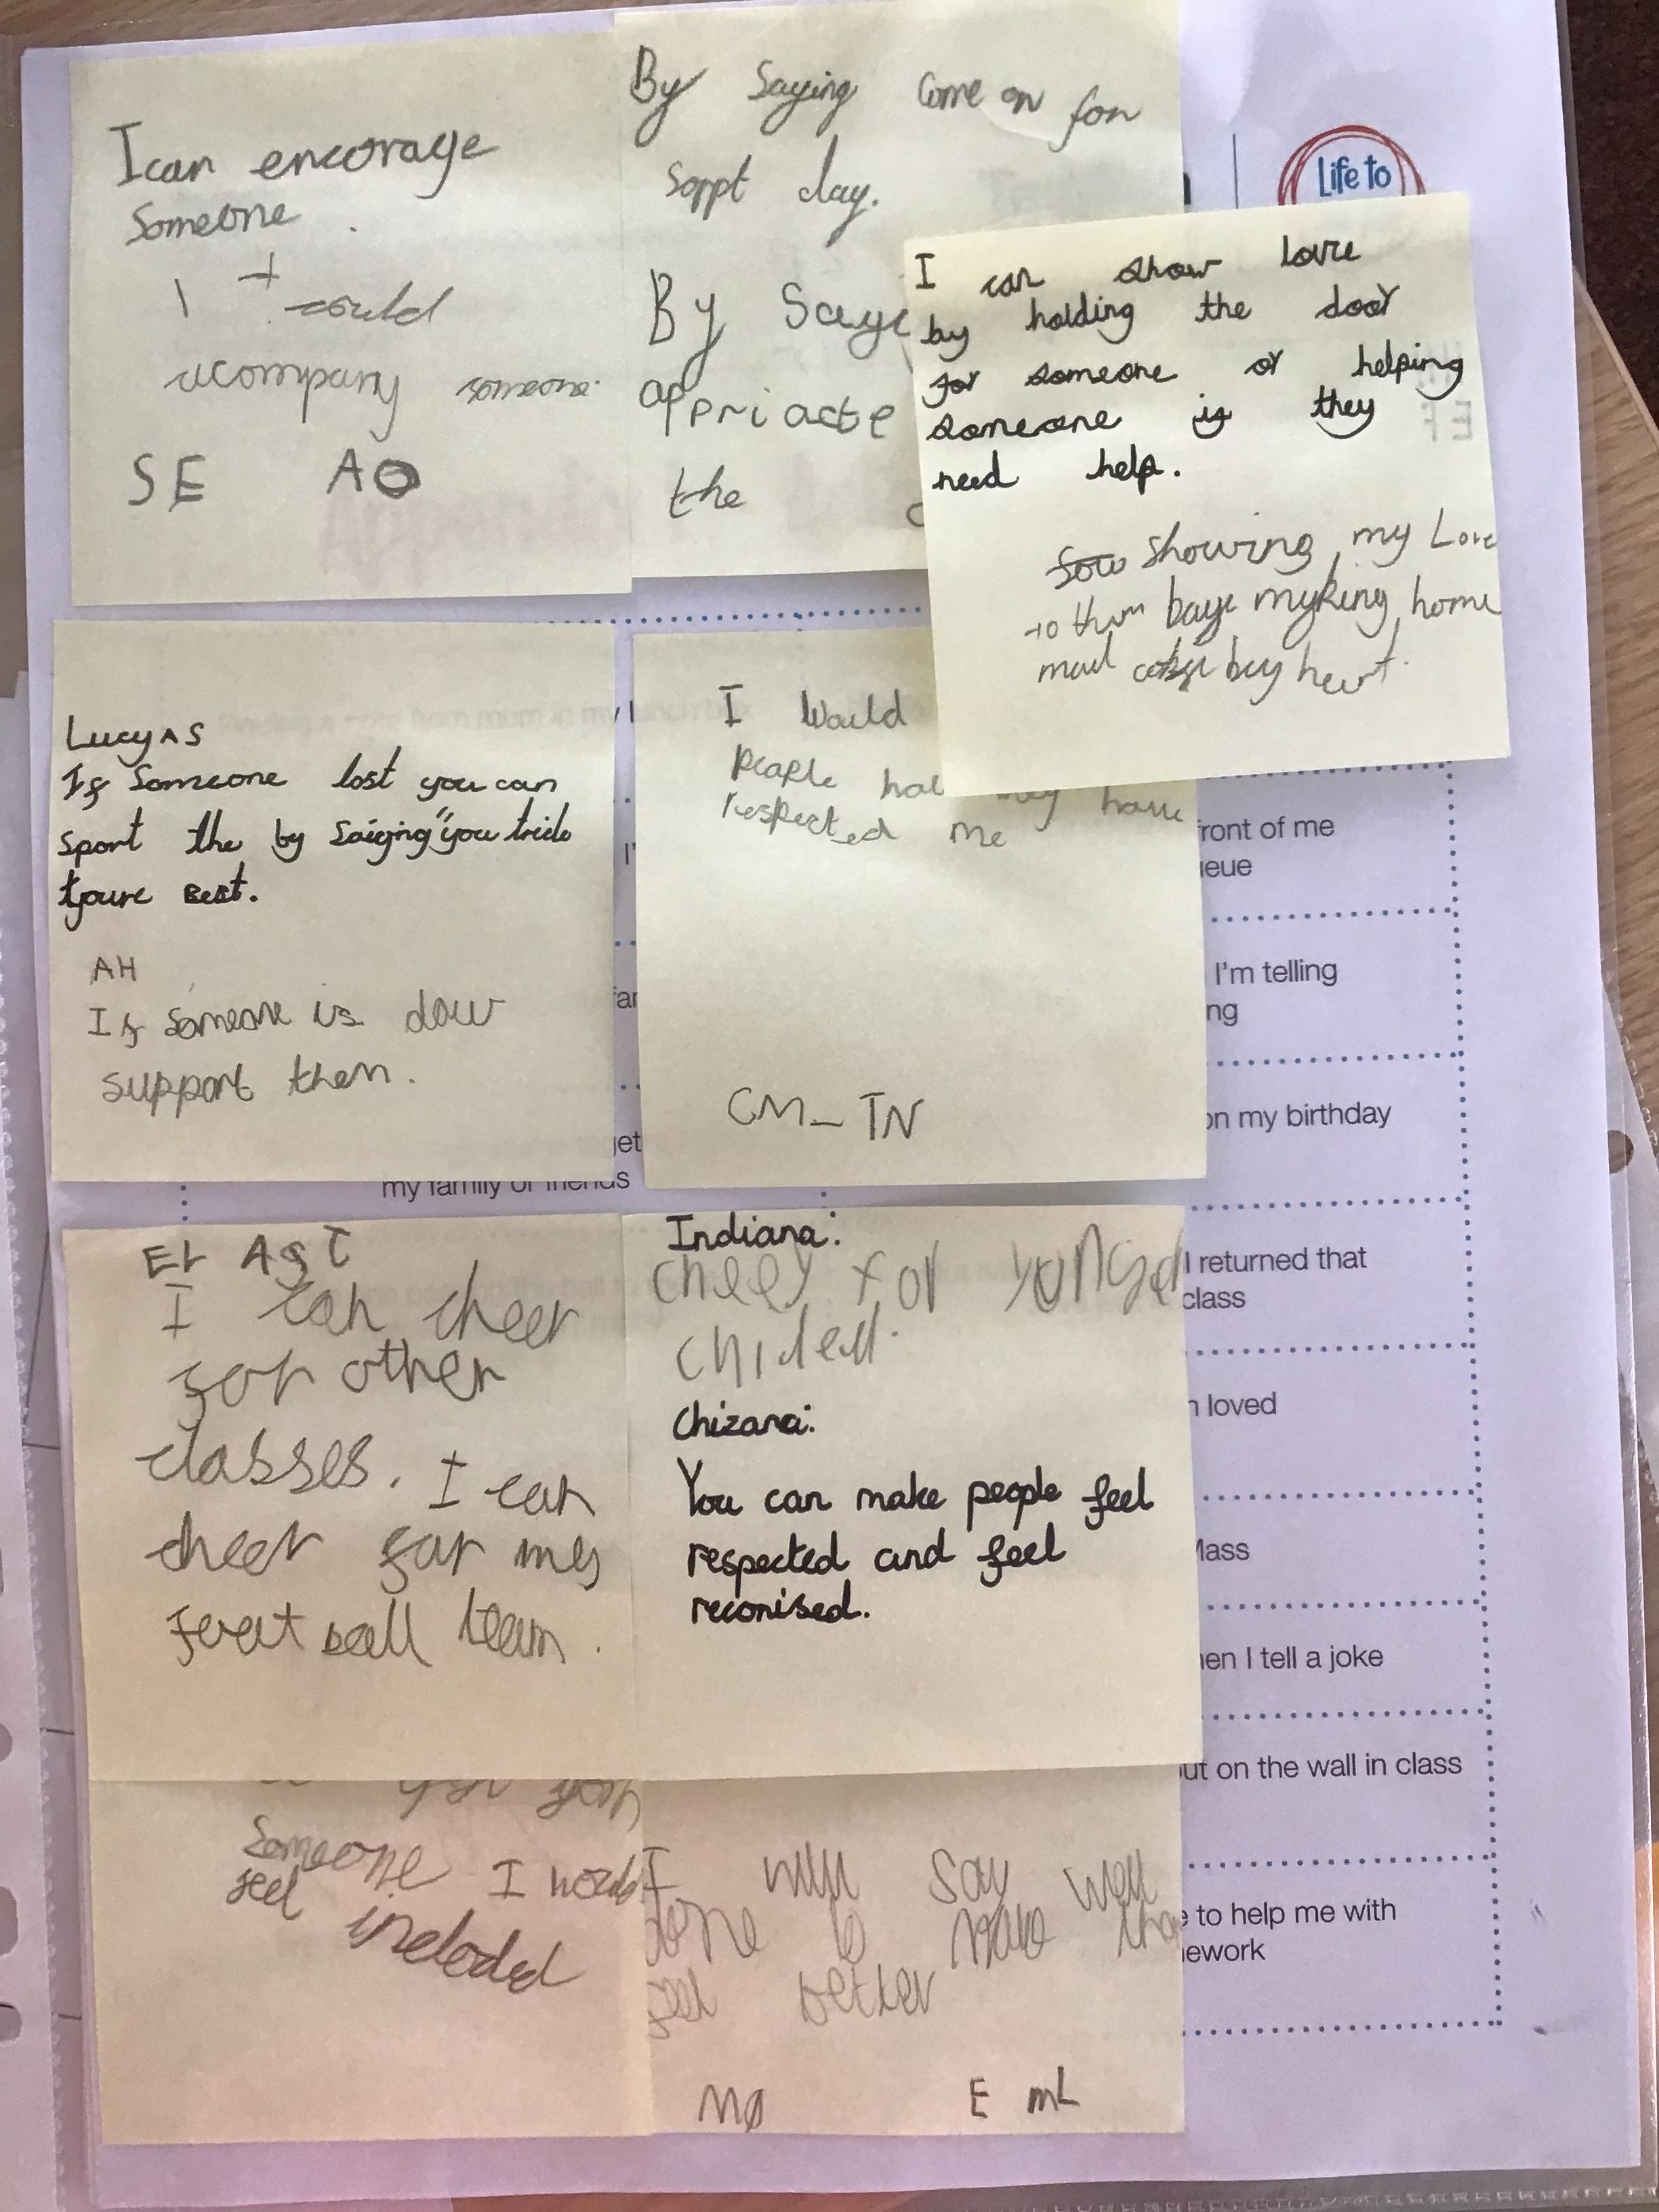 I can encorage
Someone.
I could
acompany someone.
SE AO
By Saying Come on for
soppt day.
By Saye
appriacte
the
Life to
I can show love
by holding the door
for someone or helping
someone if they
need help.
showing my Love
to them baye myking home
mad by heart.
Lucy AS
If Someone lost you can
sport the by saiging "you tride
youre Best.
AH
If someone is dow
support then.
I Would
people
respected me
have
CM_ TN
front of me
ieue
I'm telling
ng
on my birthday
get
my family or friends
I returned that
class
loved
Mass
en I tell a joke
ut on the wall in class
e to help me with
ework
I can cheer
for other
classes. I can
cheer for my
foot ball team.
Indiana:
cheer for
Chizara:
You can make people feel
respected and feel
reconised.
Someone I would
feel incloded
I will say well
done to make
feel better
MØ E mL